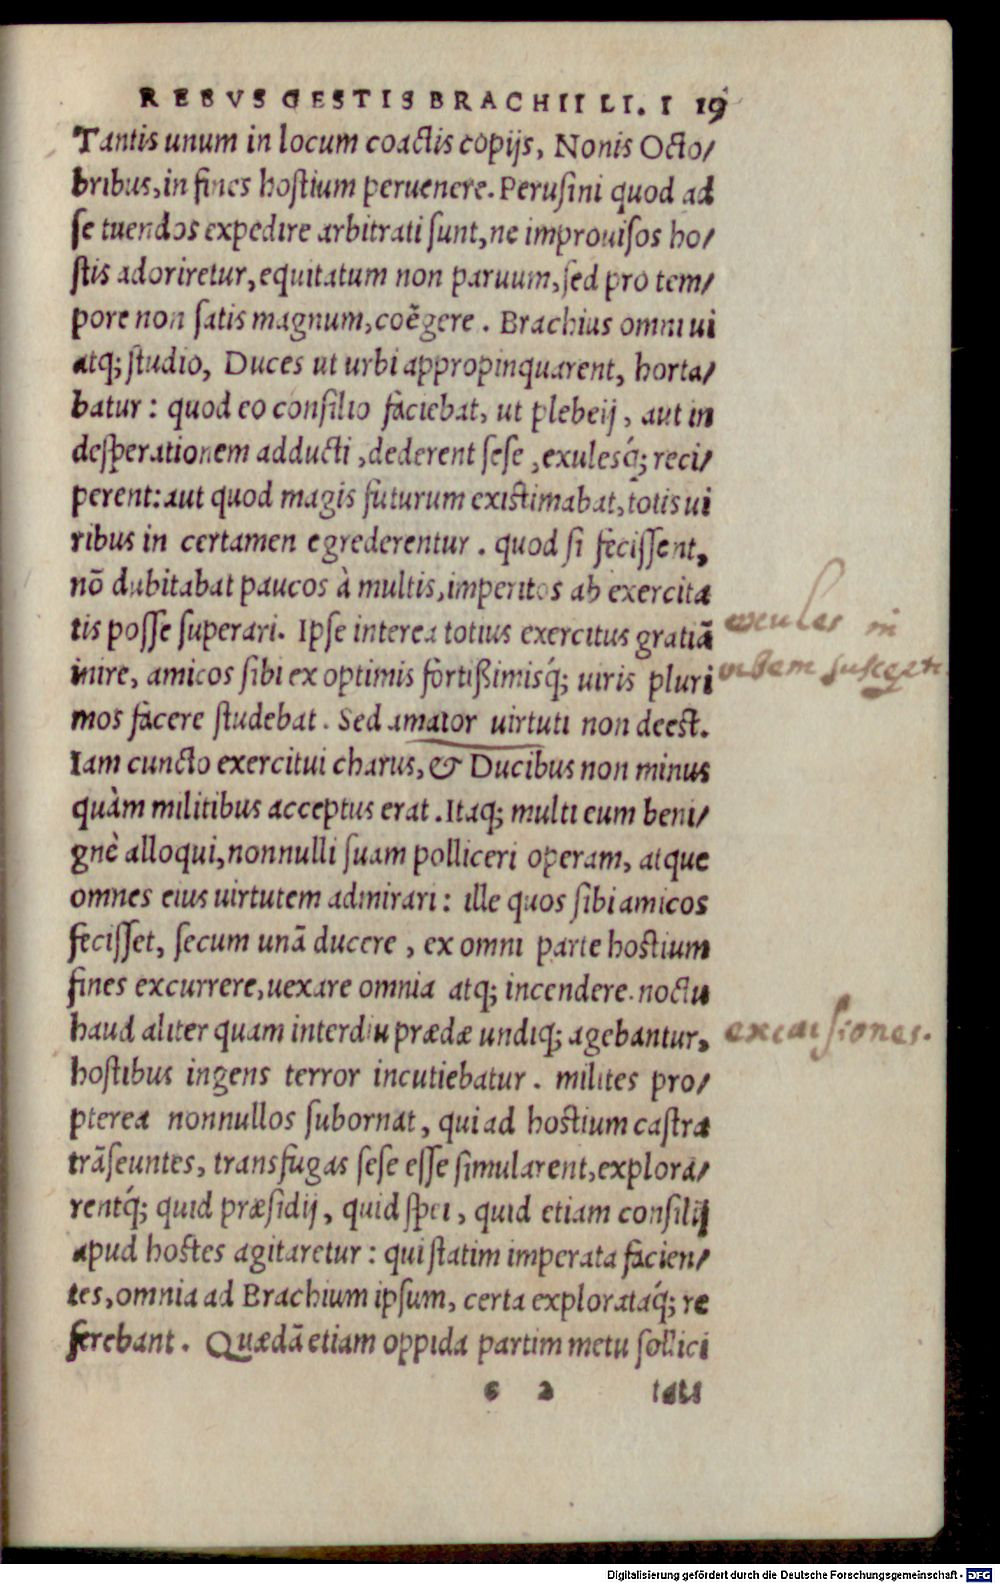 REBVS GESTIS BRACHII LI. I 19
Tantis unum in locum coactis copijs, Nonis Octo/
bribus, in fines hostium peruenere. Perusini quod ad
se tuendos expedire arbitrati sunt, ne improuisos ho/
stis adoriretur, equitatum non paruum, sed pro tem/
pore non satis magnum, coẽgere. Brachius omni ui
atq; studio, Duces ut urbi appropinquarent, horta/
batur: quod eo consilio faciebat, ut plebeij, aut in
desperationem adducti, dederent sese, exulesq́; reci/
perent: aut quod magis futurum existimabat, totis ui
ribus in certamen egrederentur. quod si fecissent,
nõ dubitabat paucos à multis, imperitos ab exercita
tis posse superari. Ipse interea totius exercitus gratiã
inire, amicos sibi ex optimis fortißimisq́; uiris pluri
mos facere studebat. Sed amator uirtuti non deest.
Iam cuncto exercitui charus, & Ducibus non minus
quàm militibus acceptus erat. Itaq; multi eum beni/
gnè alloqui, nonnulli suam polliceri operam, atque
omnes eius uirtutem admirari: ille quos sibi amicos
fecisset, secum unã ducere, ex omni parte hostium
fines excurrere, uexare omnia atq; incendere. noctu
haud aliter quam interdiu prædæ undiq; agebantur,
hostibus ingens terror incutiebatur. milites pro/
pterea nonnullos subornat, qui ad hostium castra
trãseuntes, transfugas sese esse simularent, explora/
rentq́; quid præsidij, quid spei, quid etiam consilij
apud hostes agitaretur: qui statim imperata facien/
tes, omnia ad Brachium ipsum, certa explorataq́; re
ferebant. Quædã etiam oppida partim metu sollici
c 2 tata
exules in
urbem suscepti
excursiones.
Digitalisierung gefördert durch die Deutsche Forschungsgemeinschaft - DFG